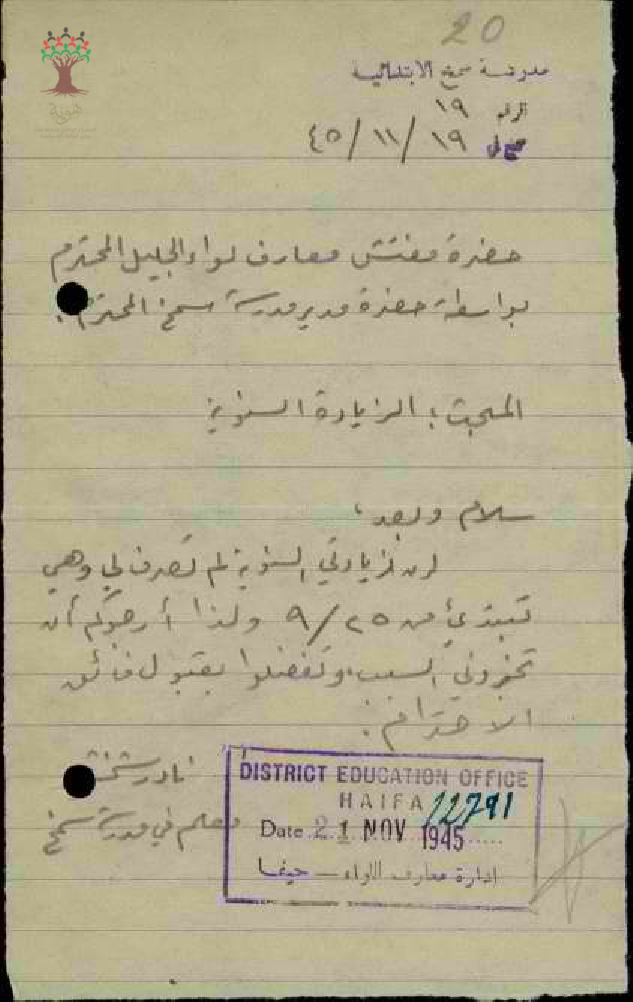 20
مدرسة سمخ الابتدائية
الرقم ١٩
سمخ في ١٩/١١/٤٥
حضرة مفتش معارف لواء الجليل المحترم
بواسطة حضرة مدير مدرسة سمخ المحترم
المبحث: الزيادة السنوية
سلام وبعد،
ان زيادتي السنوية لم تصرف لي وهي
تبتدئ من ٢٥/٩ ولذا أرجوكم أن
تخبروني السبب، وتفضلوا بقبول فائق
الاحترام.
نادر
معلم في مدرسة سمخ
DISTRICT EDUCATION OFFICE
HAIFA 12791
Date 21 NOV 1945
ادارة معارف اللواء – حيفا
هوية